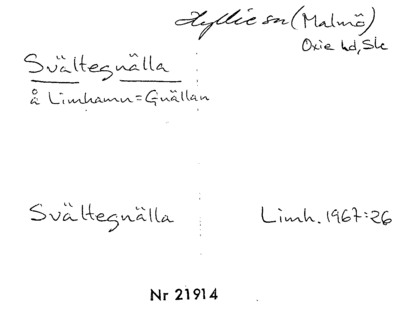 Hyllie sn (Malmö)
Oxie hd, Sk
Svältegnälla
å Limhamn = Gnällan
Svältegnälla Limh. 1967:26
Nr 21914